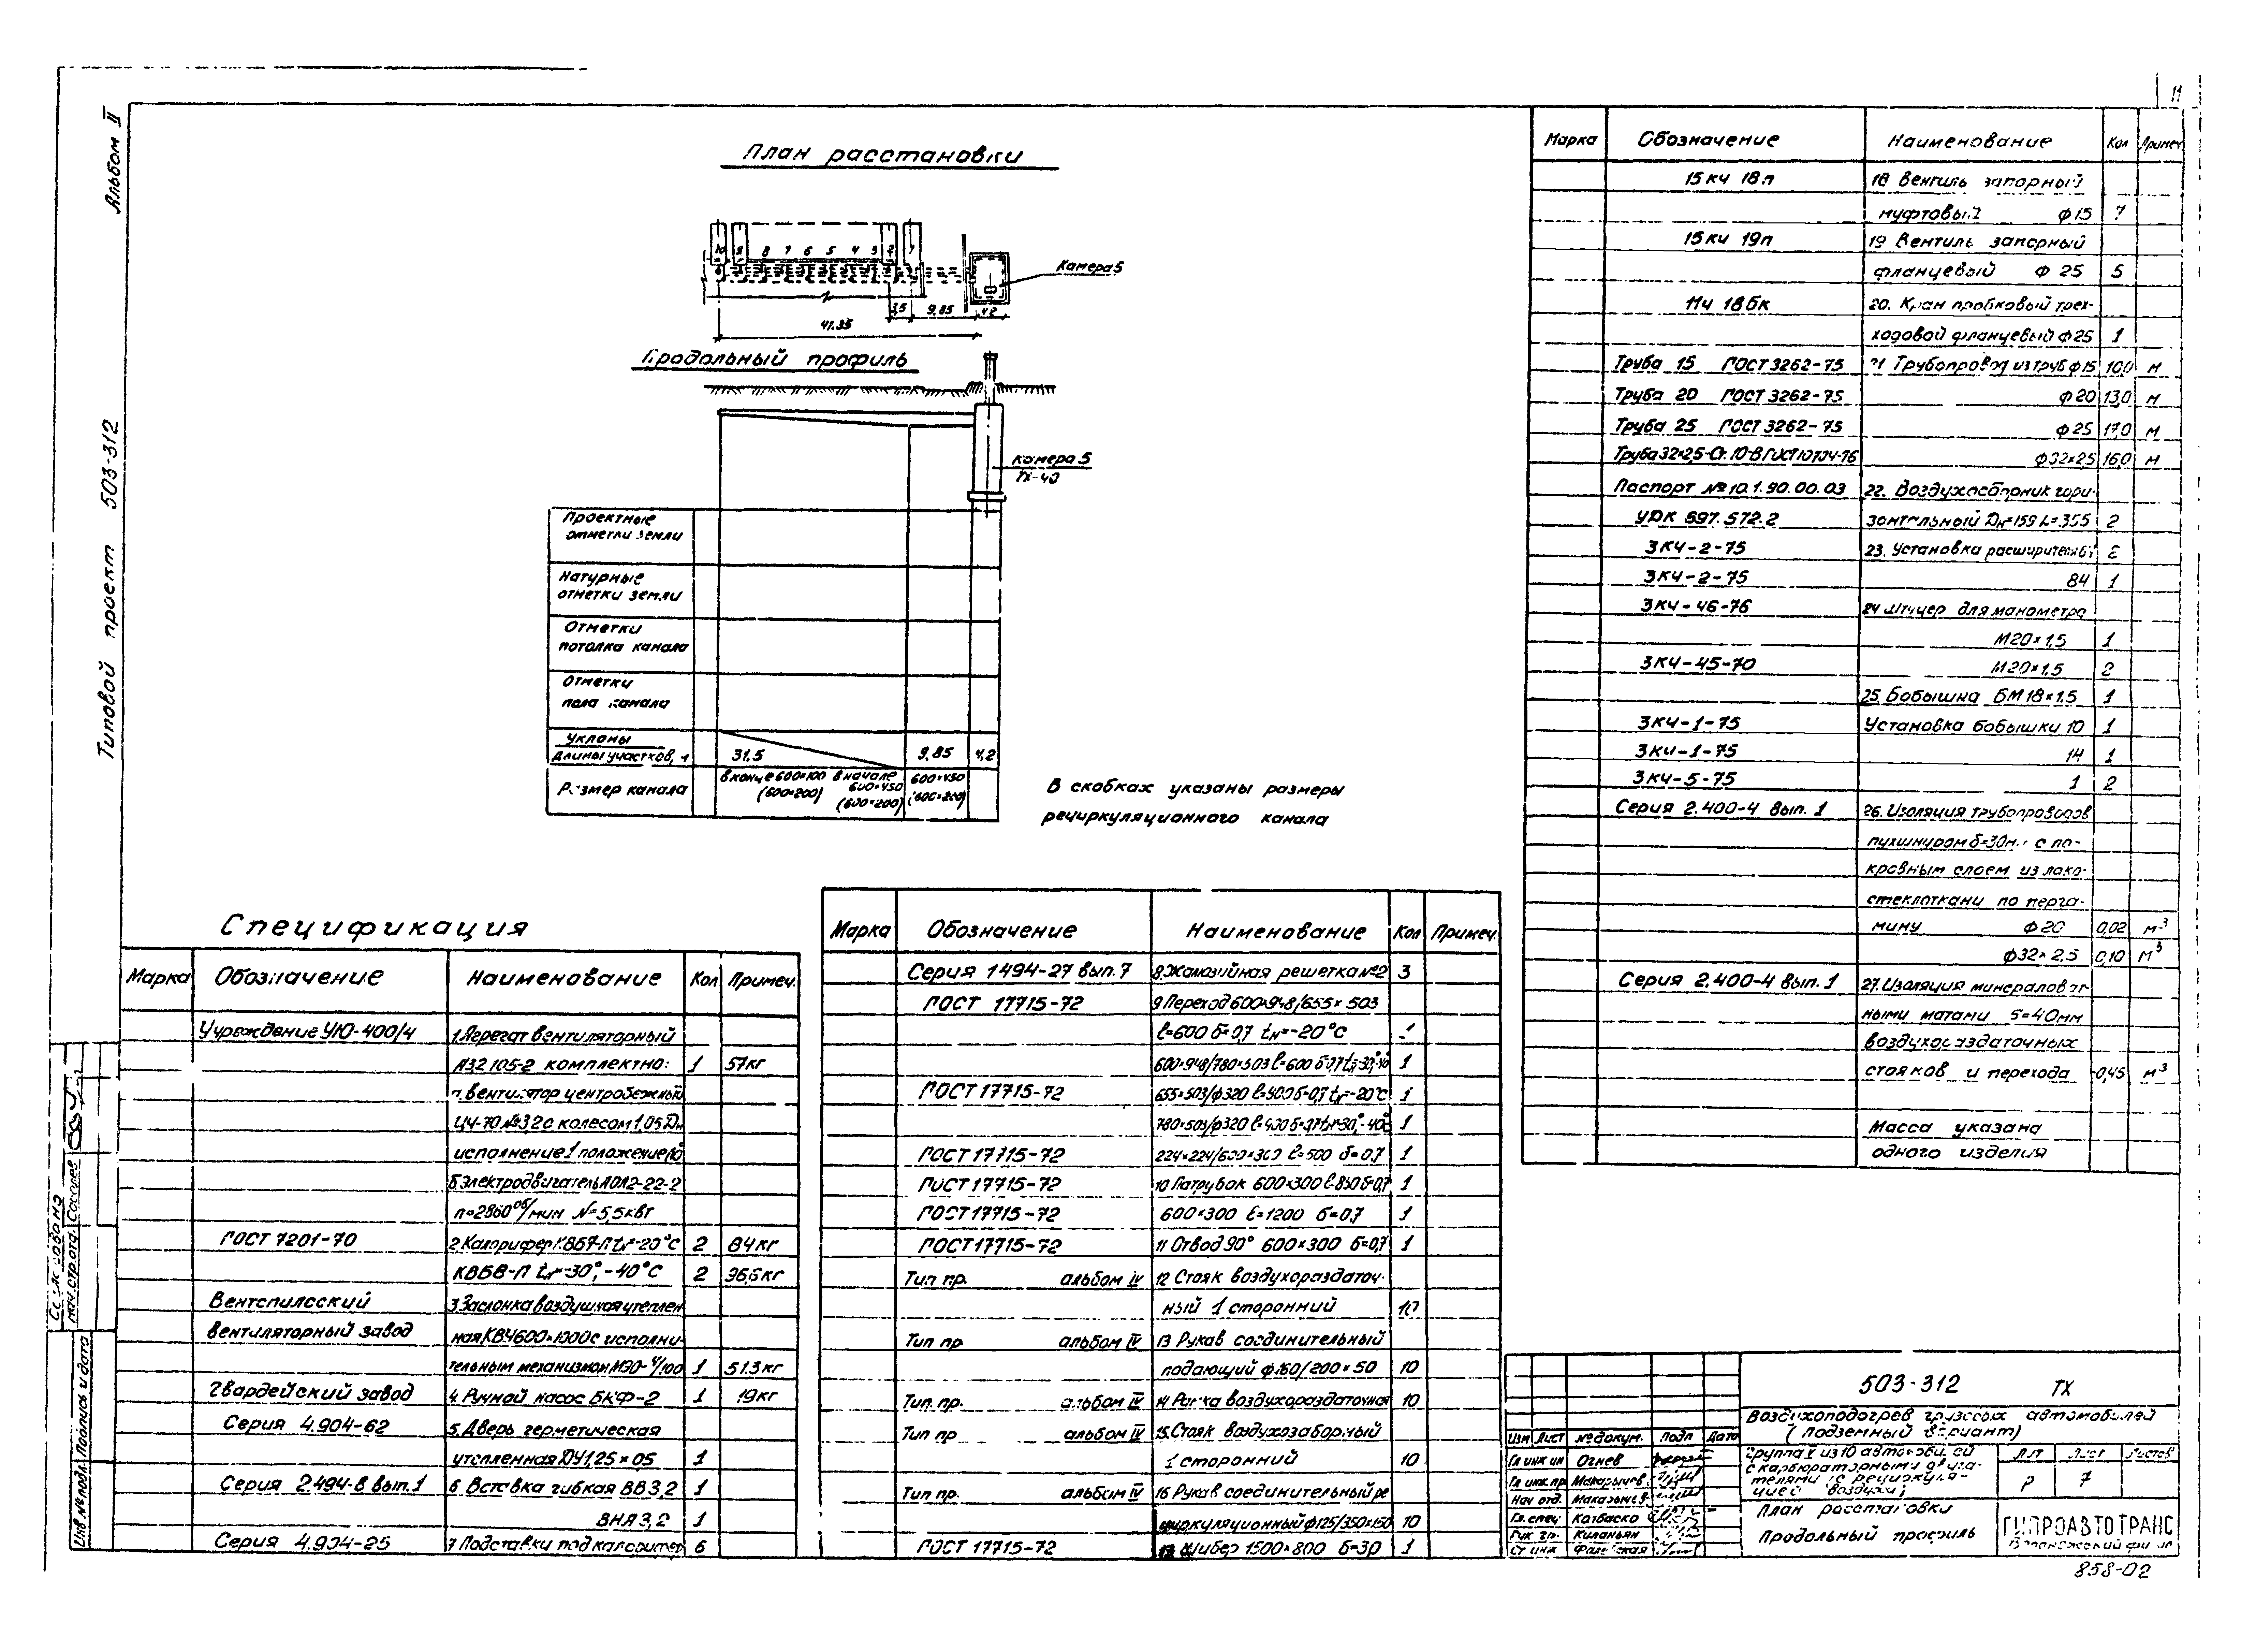 11
Альбом II
Типовой проект 503-312
План расстановки
10 9 8 7 6 5 4 3 2 1
Камера 5
3,5 9,85 4,2
41.35
Продольный профиль
камера 5
ТХ-40
Проектные
отметки земли
Натурные
отметки земли
Отметки
потолка канала
Отметки
пола канала
Уклоны
Длины участков, м 31,5 9,85 4,2
Размер канала
в конце 600×100 (600×200)
в начале 600×450 (600×200)
600×450 (600×200)
В скобках указаны размеры
рециркуляционного канала
Спецификация
Марка Обозначение Наименование Кол Примеч.
Учреждение УЮ-400/4 1.Агрегат вентиляторный
А32105-2 комплектно: 1 57кг
а.вентилятор центробежный
Ц4-70 №3,2 с колесом 1,05Дн
исполнение 1 положение
б.Электродвигатель АОЛ2-22-2
n=2860 об/мин N=5,5кВт
ГОСТ 7201-70 2 Калорифер КВБ7-П tн=-20°С 2 84кг
КВБ8-П tн=-30°,-40°С 2 96,6кг
Вентспилсский 3.Заслонка воздушная утеплен
вентиляторный завод ная КВУ600×1000 с исполни-
тельным механизмом МЭО-4/100 1 51.3кг
Гвардейский завод 4.Ручной насос БКФ-2 1 19кг
Серия 4.904-62 5.Дверь герметическая
утепленная ДУ1,25×0,5 1
Серия 2.494-8 вып.1 6 Вставка гибкая ВВ3,2 1
ВНА3,2 1
Серия 4.904-25 7 Подставки под калорифер 6
Марка Обозначение Наименование Кол Примеч.
Серия 1494-27 вып.7 8.Жалюзийная решетка №2 3
ГОСТ 17715-72 9 Переход 600×948/655×503
ℓ=600 δ=0,7 tн=-20°С 1
600×948/780×503 ℓ=600 δ=0,7 tн=-30°,-40° 1
ГОСТ 17715-72 655×503/ф320 ℓ=900 δ=0,7 tн=-20°С 1
780×503/ф320 ℓ=900 δ=0,7 tн=-30°,-40°С 1
ГОСТ 17715-72 224×224/600×300 ℓ=500 δ=0,7 1
ГОСТ 17715-72 10 Патрубок 600×300 ℓ=850 δ=0,7 1
ГОСТ 17715-72 600×300 ℓ=1200 δ=0,7 1
ГОСТ 17715-72 11 Отвод 90° 600×300 δ=0,7 1
Тип пр. альбом IV 12 Стояк воздухораздаточ-
ный 1 сторонний 10
Тип пр альбом IV 13 Рукав соединительный
подающий ф160/200×50 10
Тип. пр. альбом IV 14 Рамка воздухораздаточная 10
Тип пр альбом IV 15.Стояк воздухозаборный
1 сторонний 10
Тип пр. альбом IV 16 Рукав соединительный ре
циркуляционный ф125/350×150 10
ГОСТ 17715-72 17 Шибер 1500×800 δ=3,0 1
Марка Обозначение Наименование Кол Примеч
15 кч 18п 18 Вентиль запорный
муфтовый ф15 7
15 кч 19п 19 Вентиль запорный
фланцевый ф 25 5
11ч 18бк 20. Кран пробковый трех-
ходовой фланцевый ф25 1
Труба 15 ГОСТ 3262-75 21 Трубопровод из труб ф15 10,0 м
Труба 20 ГОСТ 3262-75 ф20 13,0 м
Труба 25 ГОСТ 3262-75 ф25 17,0 м
Труба 32×2,5-Ст.10-В ГОСТ 10704-76 ф32×2,5 16,0 м
Паспорт №10.1.90.00.03 22. Воздухосборник гори-
УДК 697.572.2 зонтальный Дн=159 L=355 2
ЗКЧ-2-75 23. Установка расширителя 2
ЗКЧ-2-75 84 1
ЗКЧ-46-76 24 Штуцер для манометра
М20×1,5 1
ЗКЧ-45-70 М20×1,5 2
25. Бобышка БМ18×1.5 1
ЗКЧ-1-75 Установка бобышки 10 1
ЗКЧ-1-75 14 1
ЗКЧ-5-75 1 2
Серия 2.400-4 вып. 1 26.Изоляция трубопроводов
пухшнуром δ=30мм с по-
кровным слоем из лако-
стеклоткани по перга-
мину ф 20 0,02 м³
ф32×2,5 0,10 м³
Серия 2.400-4 вып. 1 27.Изоляция минераловат-
ными матами δ=40мм
воздухораздаточных
стояков и перехода 0,45 м³
Масса указана
одного изделия
Согласовано
Нач. стр. отд.
Инв № подл. Подпись и дата
503-312 ТХ
Воздухоподогрев грузовых автомобилей
(подземный вариант)
Изм Лист № докум. Подп Дата
Гл инж ин Огнев
Гл инж.пр Макарычев
Нач отд. Макарычев
Гл. спец Катбаско
Рук гр. Киланьян
Ст инж
Группа V из 10 автомобилей
с карбюраторными двига-
телями (с рециркуля-
цией воздуха)
Лит Лист Листов
Р 7
План расстановки
Продольный профиль
ГИПРОАВТОТРАНС
Воронежский филиал
858-02